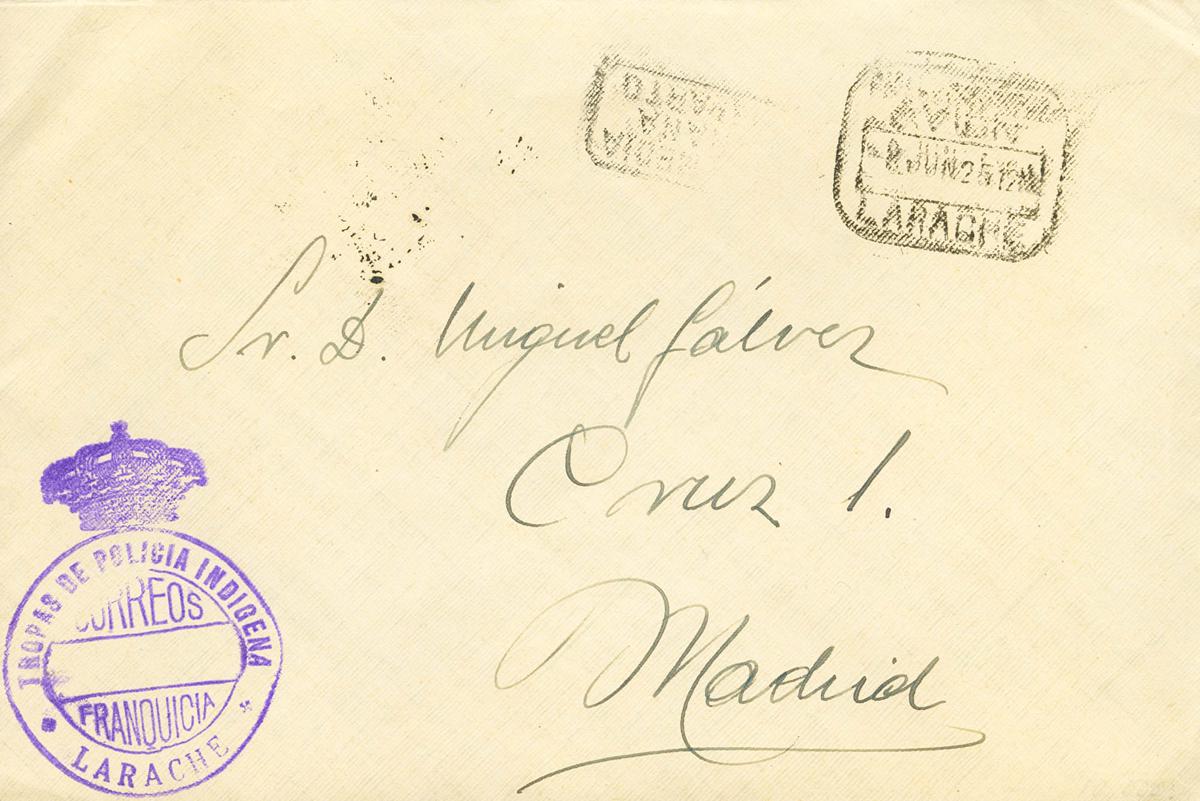 LARACHE
Sr. D. Miguel Gálvez
Cruz 1.
Madrid
TROPAS DE POLICIA INDIGENA
CORREOS
FRANQUICIA
LARACHE